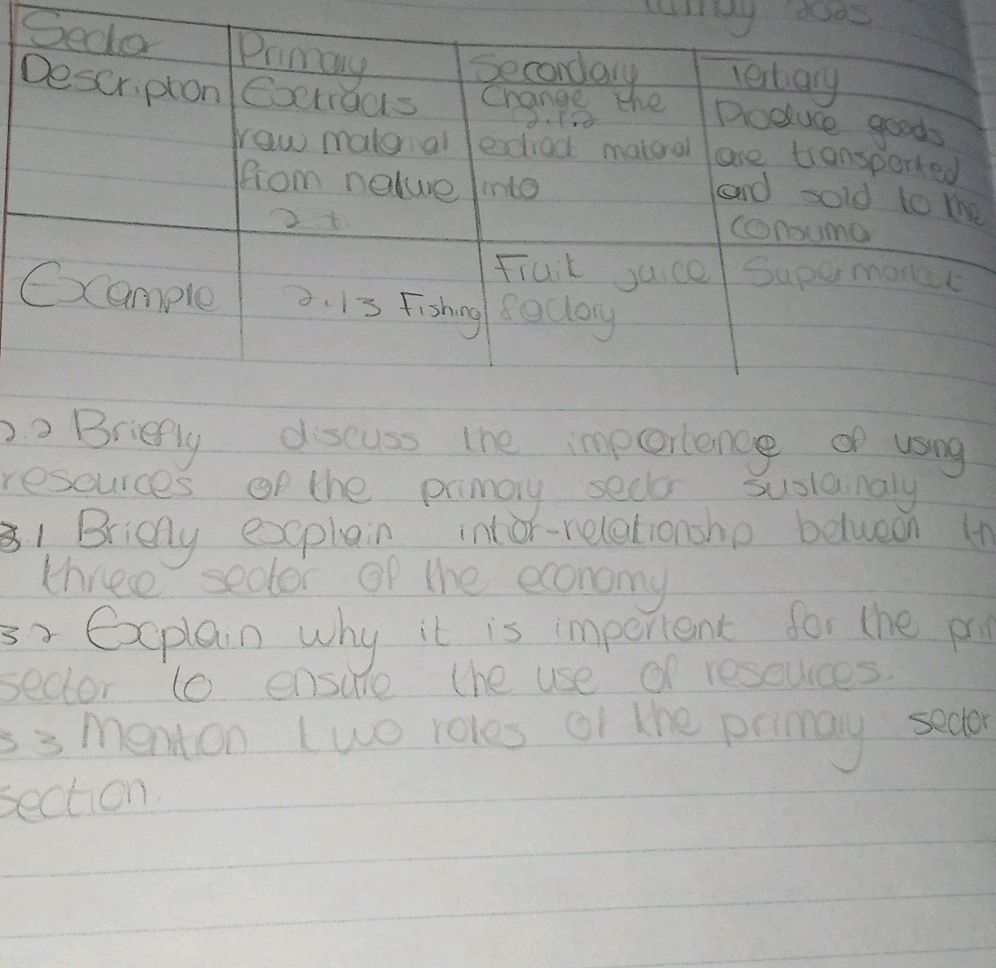 May 2025
Sector Primary Secondary Tertiary
Description Exctracts Change the Produce goods
2.1.2
raw material extract material are transported
from nature into and sold to the
2 1 consumer
Example 2.13 Fishing Fruit juice Supermarket
factory
2.2 Briefly discuss the importance of using
resources of the primary sector sustainaly
3.1 Briefly excplain inter-relationship between
three sector of the economy
3.2 Excplain why it is important for the
sector to ensure the use of resources.
3.3 Mention two roles of the primary sector
section.